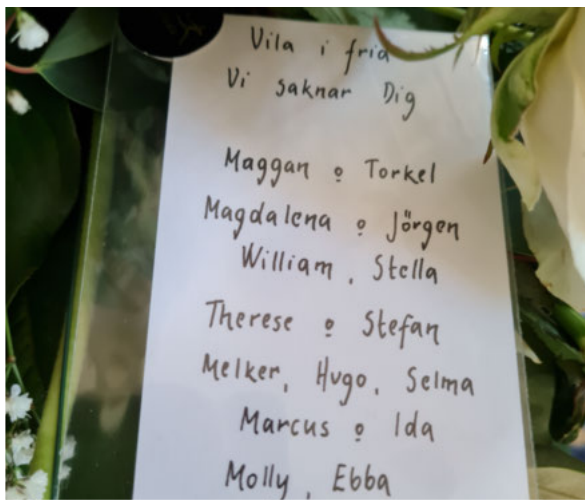 Vila i frid
Vi saknar Dig
Maggan o Torkel
Magdalena o Jörgen
William, Stella
Therese o Stefan
Melker, Hugo, Selma
Marcus o Ida
Molly, Ebba